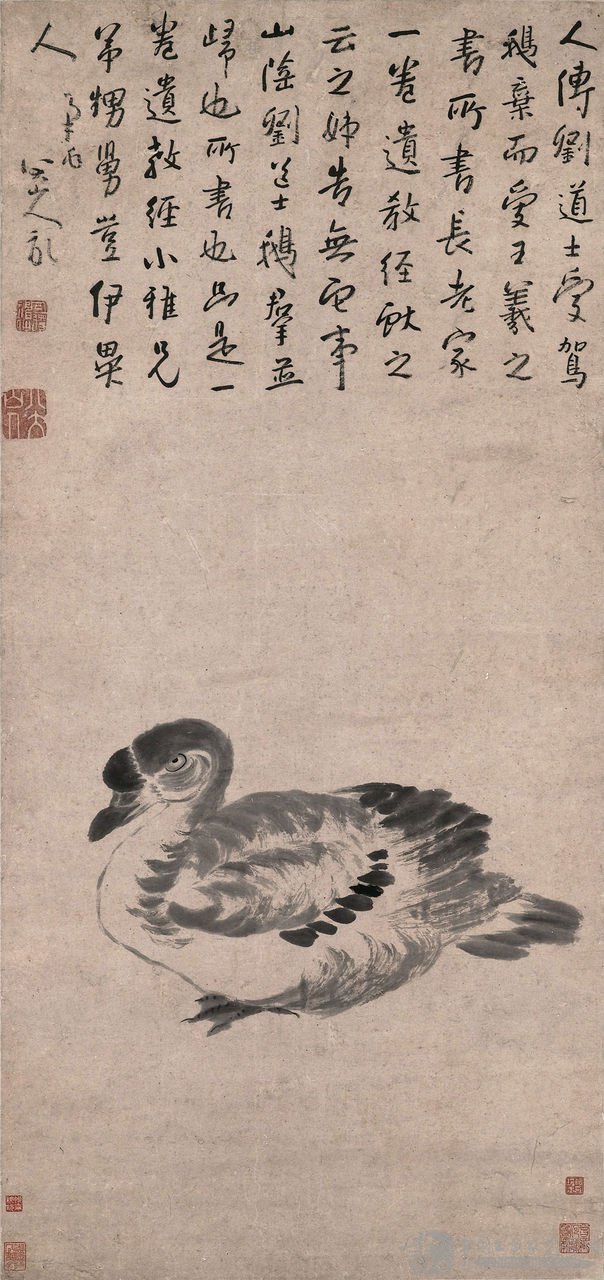 人傳劉道士愛駕
鵝棄而愛王羲之
書所書長老家
一卷遺教經獻之
云之姊告無它事
山陰劉道士鵝群並
歸也所書也只是一
卷遺教經小雅兄
弟甥舅豈伊異
人
八山人